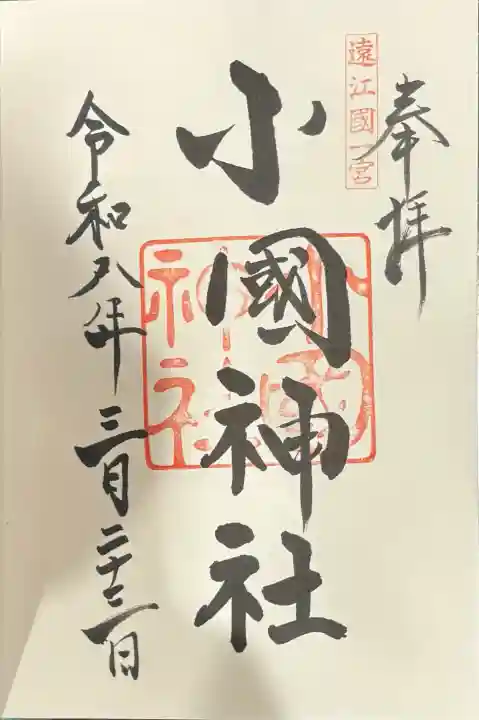 遠江國一宮
奉拝
小國神社
小國神社
令和八年三月二十二日